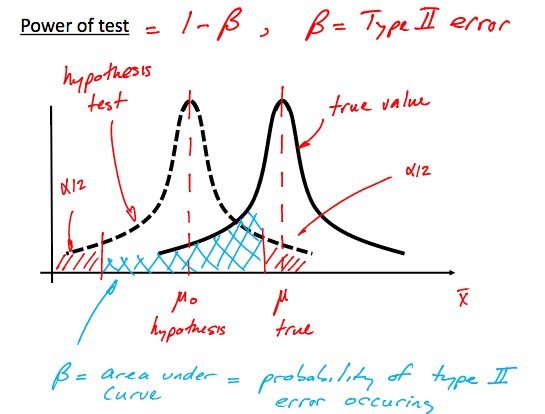 Power of test = 1 - β , β = Type II error
hypothesis
test
true value
α/2
α/2
μo
μ
x̄
hypothesis
true
β = area under = probability of type II
curve
error occuring